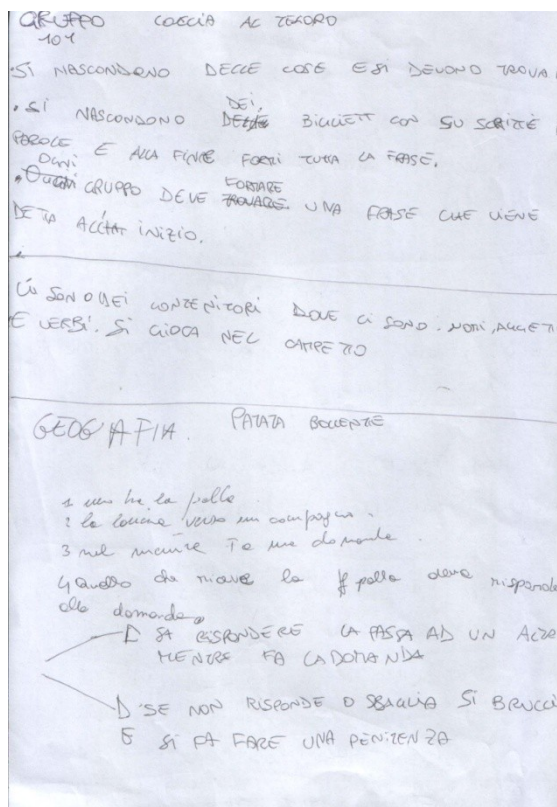 GRUPPO CACCIA AL TESORO
101
• SI NASCONDONO DELLE COSE E SI DEVONO TROVA
• SI NASCONDONO DEI BIGLIETT CON SU SCRITTE
PAROLE E ALLA FINE FORMI TUTTA LA FRASE.
• OGNI GRUPPO DEVE FORMARE UNA FRASE CHE VIENE
DETTA ALL' INIZIO.
CI SONO DEI CONTENITORI DOVE CI SONO. NOMI, AGGETI
E VERBI. SI GIOCA NEL CAMPETTO
GEOGRAFIA. PATATA BOLLENTE
1 uno ha la palla.
2 la lancia verso un compagno.
3 nel mentre fa una domanda.
4 quello che riceve la palla deve risponde
alla domanda
SA RISPONDERE LA PASSA AD UN ALTR
MENTRE FA LA DOMANDA
SE NON RISPONDE O SBAGLIA SI BRUCCI
E SI FA FARE UNA PENITENZA